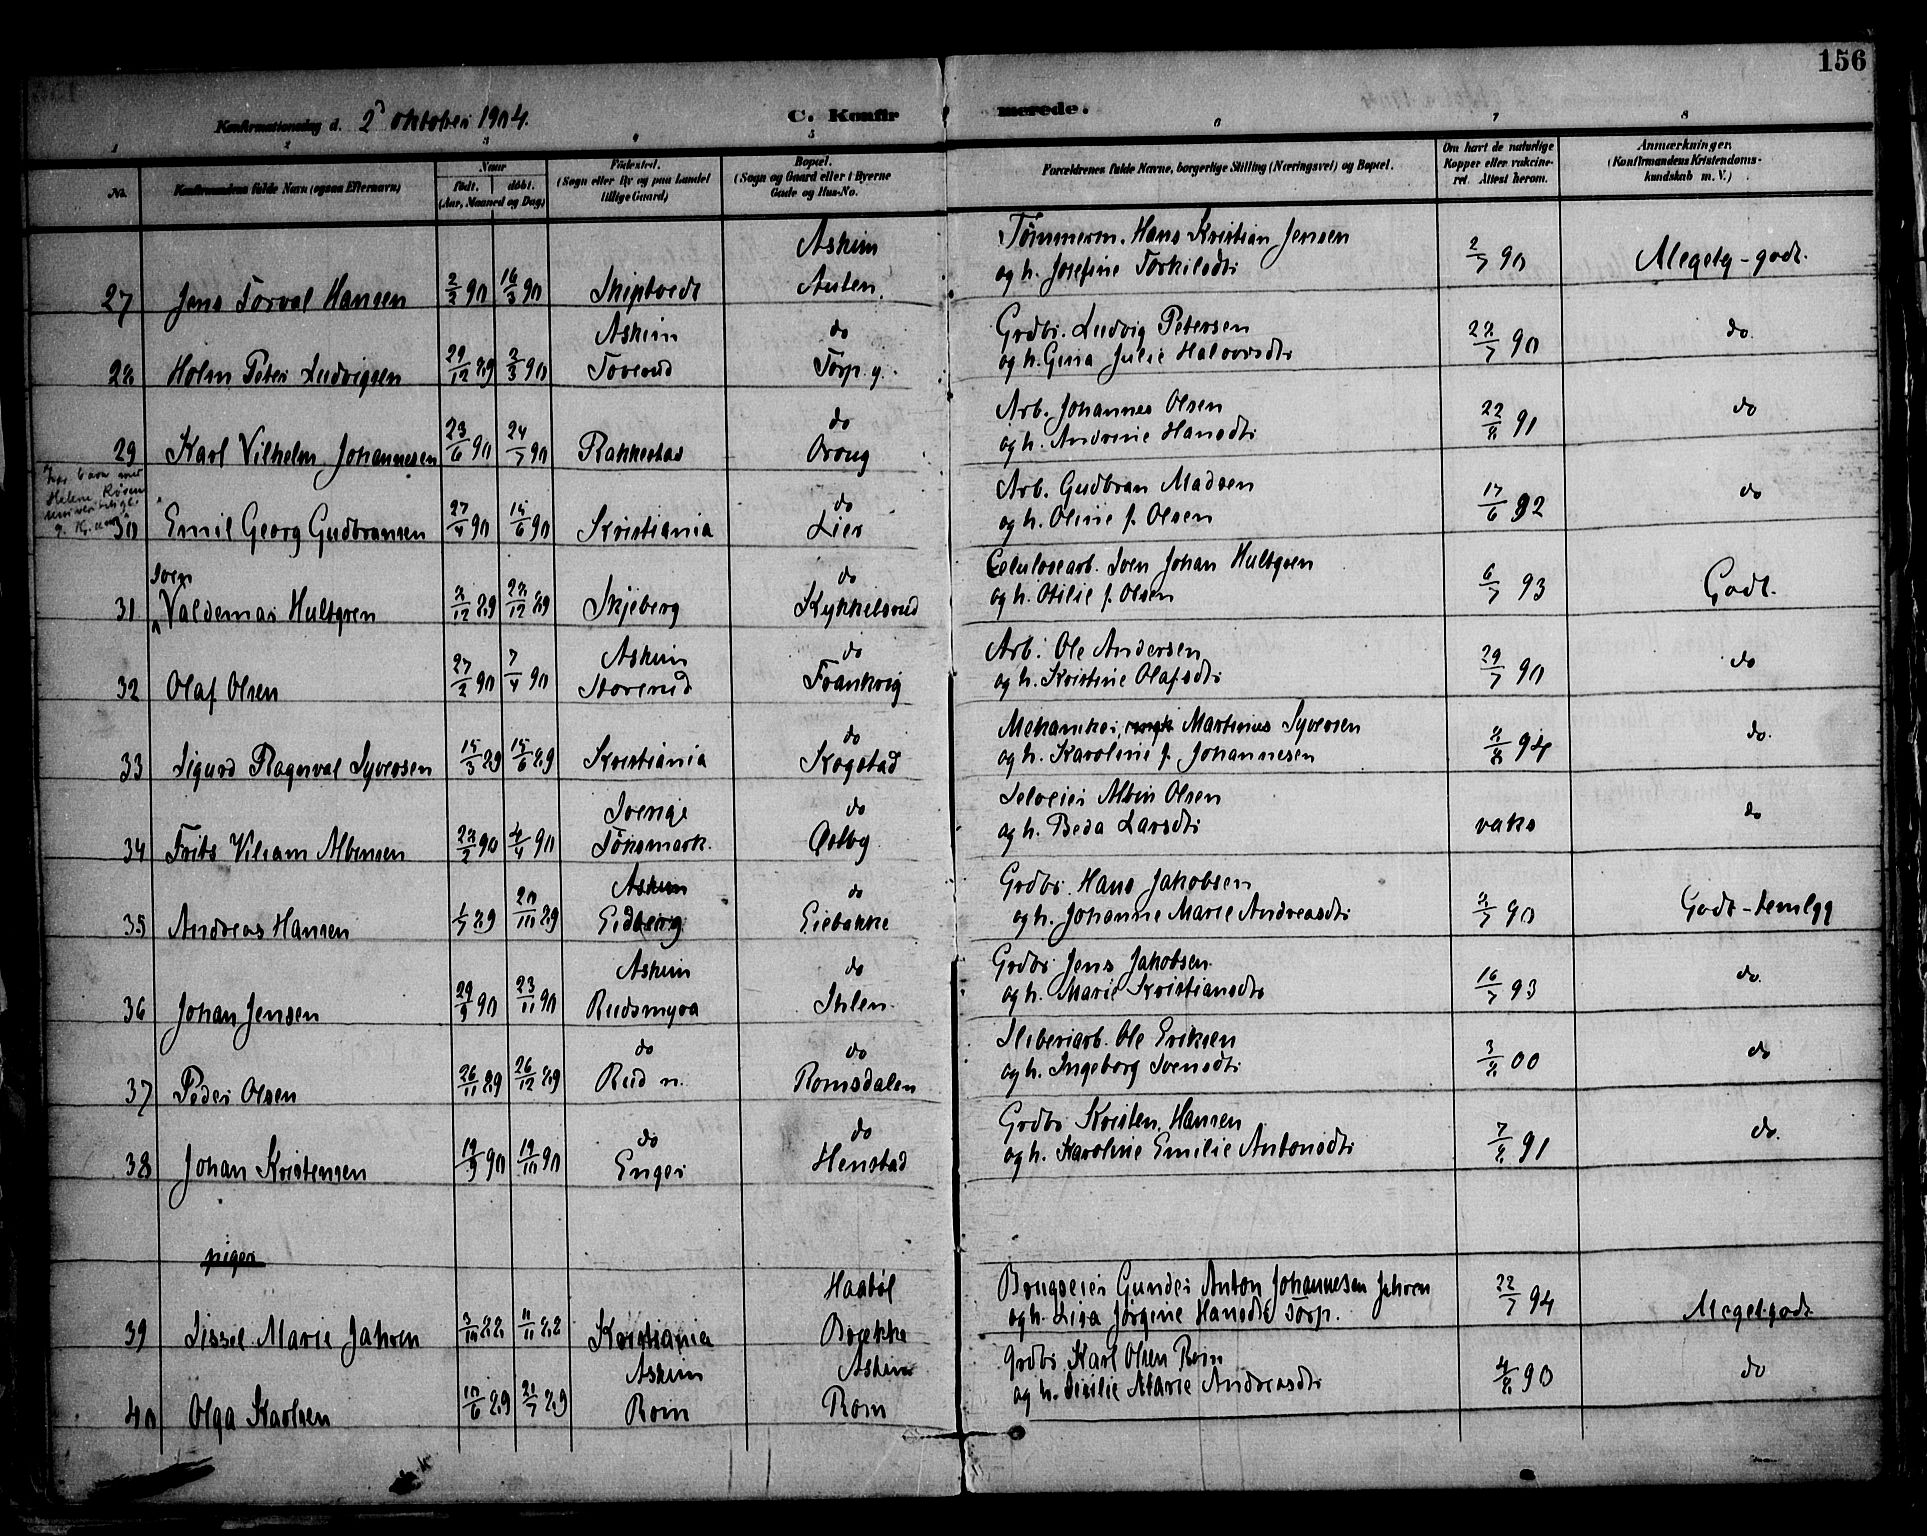 156
Konfirmationsdag d. 2 oktober 1904. C. Konfirmerede.
1 2 3 4 5 6 7 8
No. Konfirmandens fulde Navn (ogsaa Efternavn) Naar født. døbt. (Aar, Maaned og Dag) Fødested. (Sogn eller By og paa Landet tillige Gaard) Bopæl. (Sogn og Gaard eller i Byerne Gade og Hus-No. Forældrenes fulde Navne, borgerlige Stilling (Næringsvei) og Bopæl. Om havt de naturlige Kopper eller vaccineret. Attest herom. Anmærkninger. (Konfirmandens Kristendomskundskab m. V.)
Askim Tømmerm. Hans Kristian Jensen
27 Jens Torval Hansen 2/2 90 16/3 90 Skiptvedt Auten. og h. Josefine Torkilsdtr 2/7 90 Meget-godt.
Askim do Grdbr. Ludvig Petersen
28 Holm Peter Ludvigsen 29/12 89 2/3 90 Toverud Torp. g. og h. Gina Julie Halvorsdtr 28/7 90 do.
do Arb. Johannes Olsen
29 Karl Vilhelm Johannesen 23/6 90 24/7 90 Rakkestad Oraug og h. Andrine Hansdtr 22/8 91 do
do Arb. Gudbran Madsen
30 Emil Georg Gudbransen 27/4 90 15/6 90 Kristiania Lier og h. Oline f. Olsen 17/6 92 do
Sven do Celulosearb. Sven Johan Hultgren
31 Valdemar Hultgren 8/12 89 28/12 89 Skjeberg Kykkelsrud og h. Otilie f. Olsen 6/7 93 Godt.
Askim do Arb. Ole Andersen
32 Olaf Olsen 27/2 90 7/4 90 Storerud Frankvig og h. Kristine Olafsdtr 29/7 90 do
do Mekaniker Martinius Syversen
33 Sigurd Ragnval Syversen 15/3 89 15/6 89 Kristiania Kogstad og h. Karoline f. Johannesen 8/8 94 do.
Sverige do Selveier Albin Olsen
34 Frits Viliam Albinsen 28/2 90 4/4 90 Tönsmark. Østby og h. Beda Larsdtr vaks do
Askim do Grdbr. Hans Jakobsen
35 Andreas Hansen 1/7 89 20/10 89 Eidberg Eiebakke og h. Johanne Marie Andreasdtr 8/7 90 Godt-temlgg
Askim do Grdbr Jens Jakobsen
36 Johan Jensen 29/9 90 23/11 90 Rudsmyra Ihlen. og h. Marie Kristiansdtr 16/7 93 do.
do do Sliberiarb. Ole Eriksen
37 Peder Olsen 26/11 89 26/12 89 Rud n. Romsdalen og h. Ingeborg Svensdtr 3/8 00 do
do do Grdbr Kristen Hansen
38 Johan Kristensen 19/9 90 19/10 90 Enger Henstad og h. Karoline Emilie Antonsdtr 7/8 91 do.
piger
Haabøl Brugseier Gunder Anton Johannesen Jahren
39 Sissel Marie Jahren 3/10 88 11/11 88 Kristiania Brække og h. Lisa Jørgine Hansdtr Torp. 22/7 94 Megetgodt
Askim Askim grdbr Karl Olsen Rom
40 Olga Karlsen 10/6 89 21/7 89 Rom Rom og h. Sisilie Marie Andreasdtr 4/8 90 do